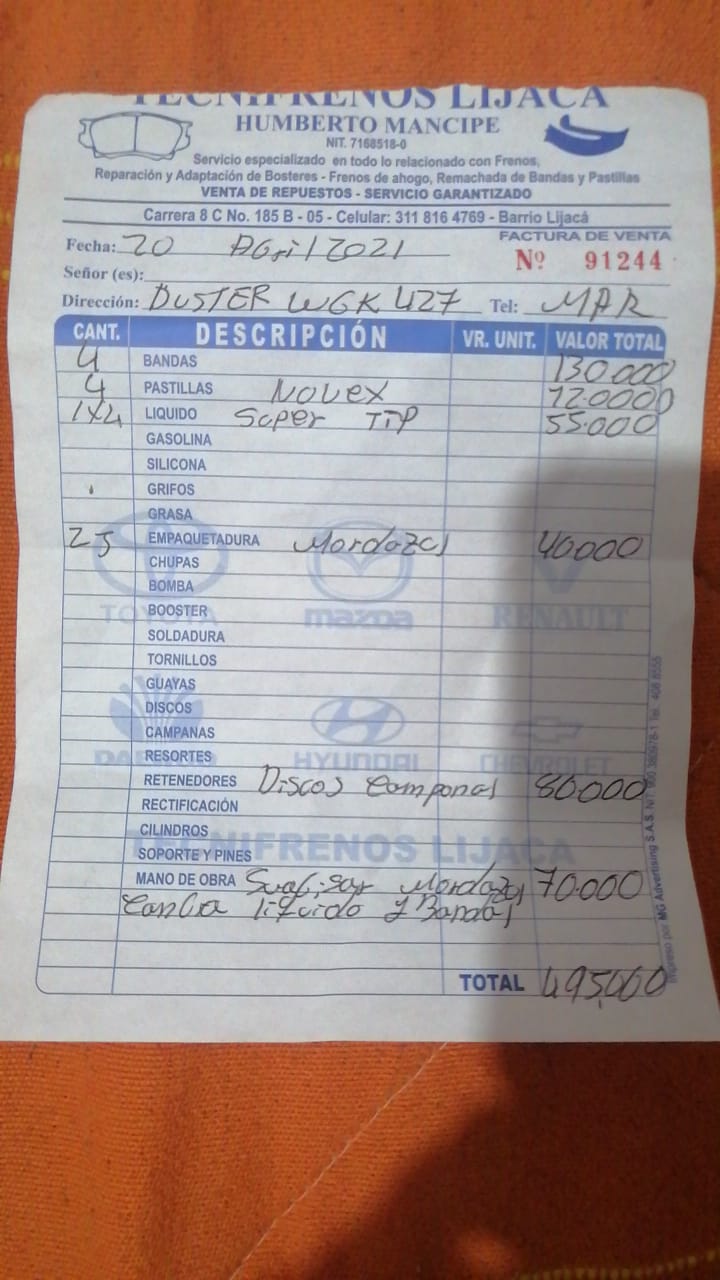 TECNIFRENOS LIJACA
HUMBERTO MANCIPE
NIT. 7168518-0
Servicio especializado en todo lo relacionado con Frenos,
Reparación y Adaptación de Bosteres - Frenos de ahogo, Remachada de Bandas y Pastillas
VENTA DE REPUESTOS - SERVICIO GARANTIZADO
Carrera 8 C No. 185 B - 05 - Celular: 311 816 4769 - Barrio Lijacá
FACTURA DE VENTA
Fecha: 20 Abril 2021 Nº 91244
Señor (es):
Dirección: DUSTER WGK 427 Tel:
CANT. DESCRIPCIÓN VR. UNIT. VALOR TOTAL
4 BANDAS 130.000
4 PASTILLAS 120.000
LIQUIDO Super 55.000
GASOLINA
SILICONA
GRIFOS
GRASA
EMPAQUETADURA Mordazas 40.000
CHUPAS
BOMBA
BOOSTER
SOLDADURA
TORNILLOS
GUAYAS
DISCOS
CAMPANAS
RESORTES
RETENEDORES Discos Campanas 80.000
RECTIFICACIÓN
CILINDROS
SOPORTE Y PINES
MANO DE OBRA Mordazas 70.000
liquido y Bandas
TOTAL 495,000
TOYOTA mazda RENAULT
DAEWOO HYUNDAI CHEVROLET
TECNIFRENOS LIJACA
Impreso por MG Advertising S.A.S. NIT. 900 380978-1 Tel. 408 8555